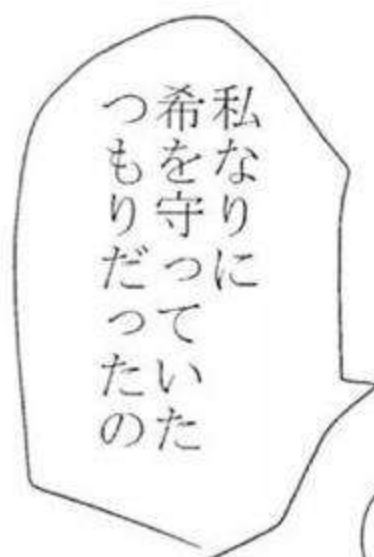 私なりに
希を守っていた
つもりだったの